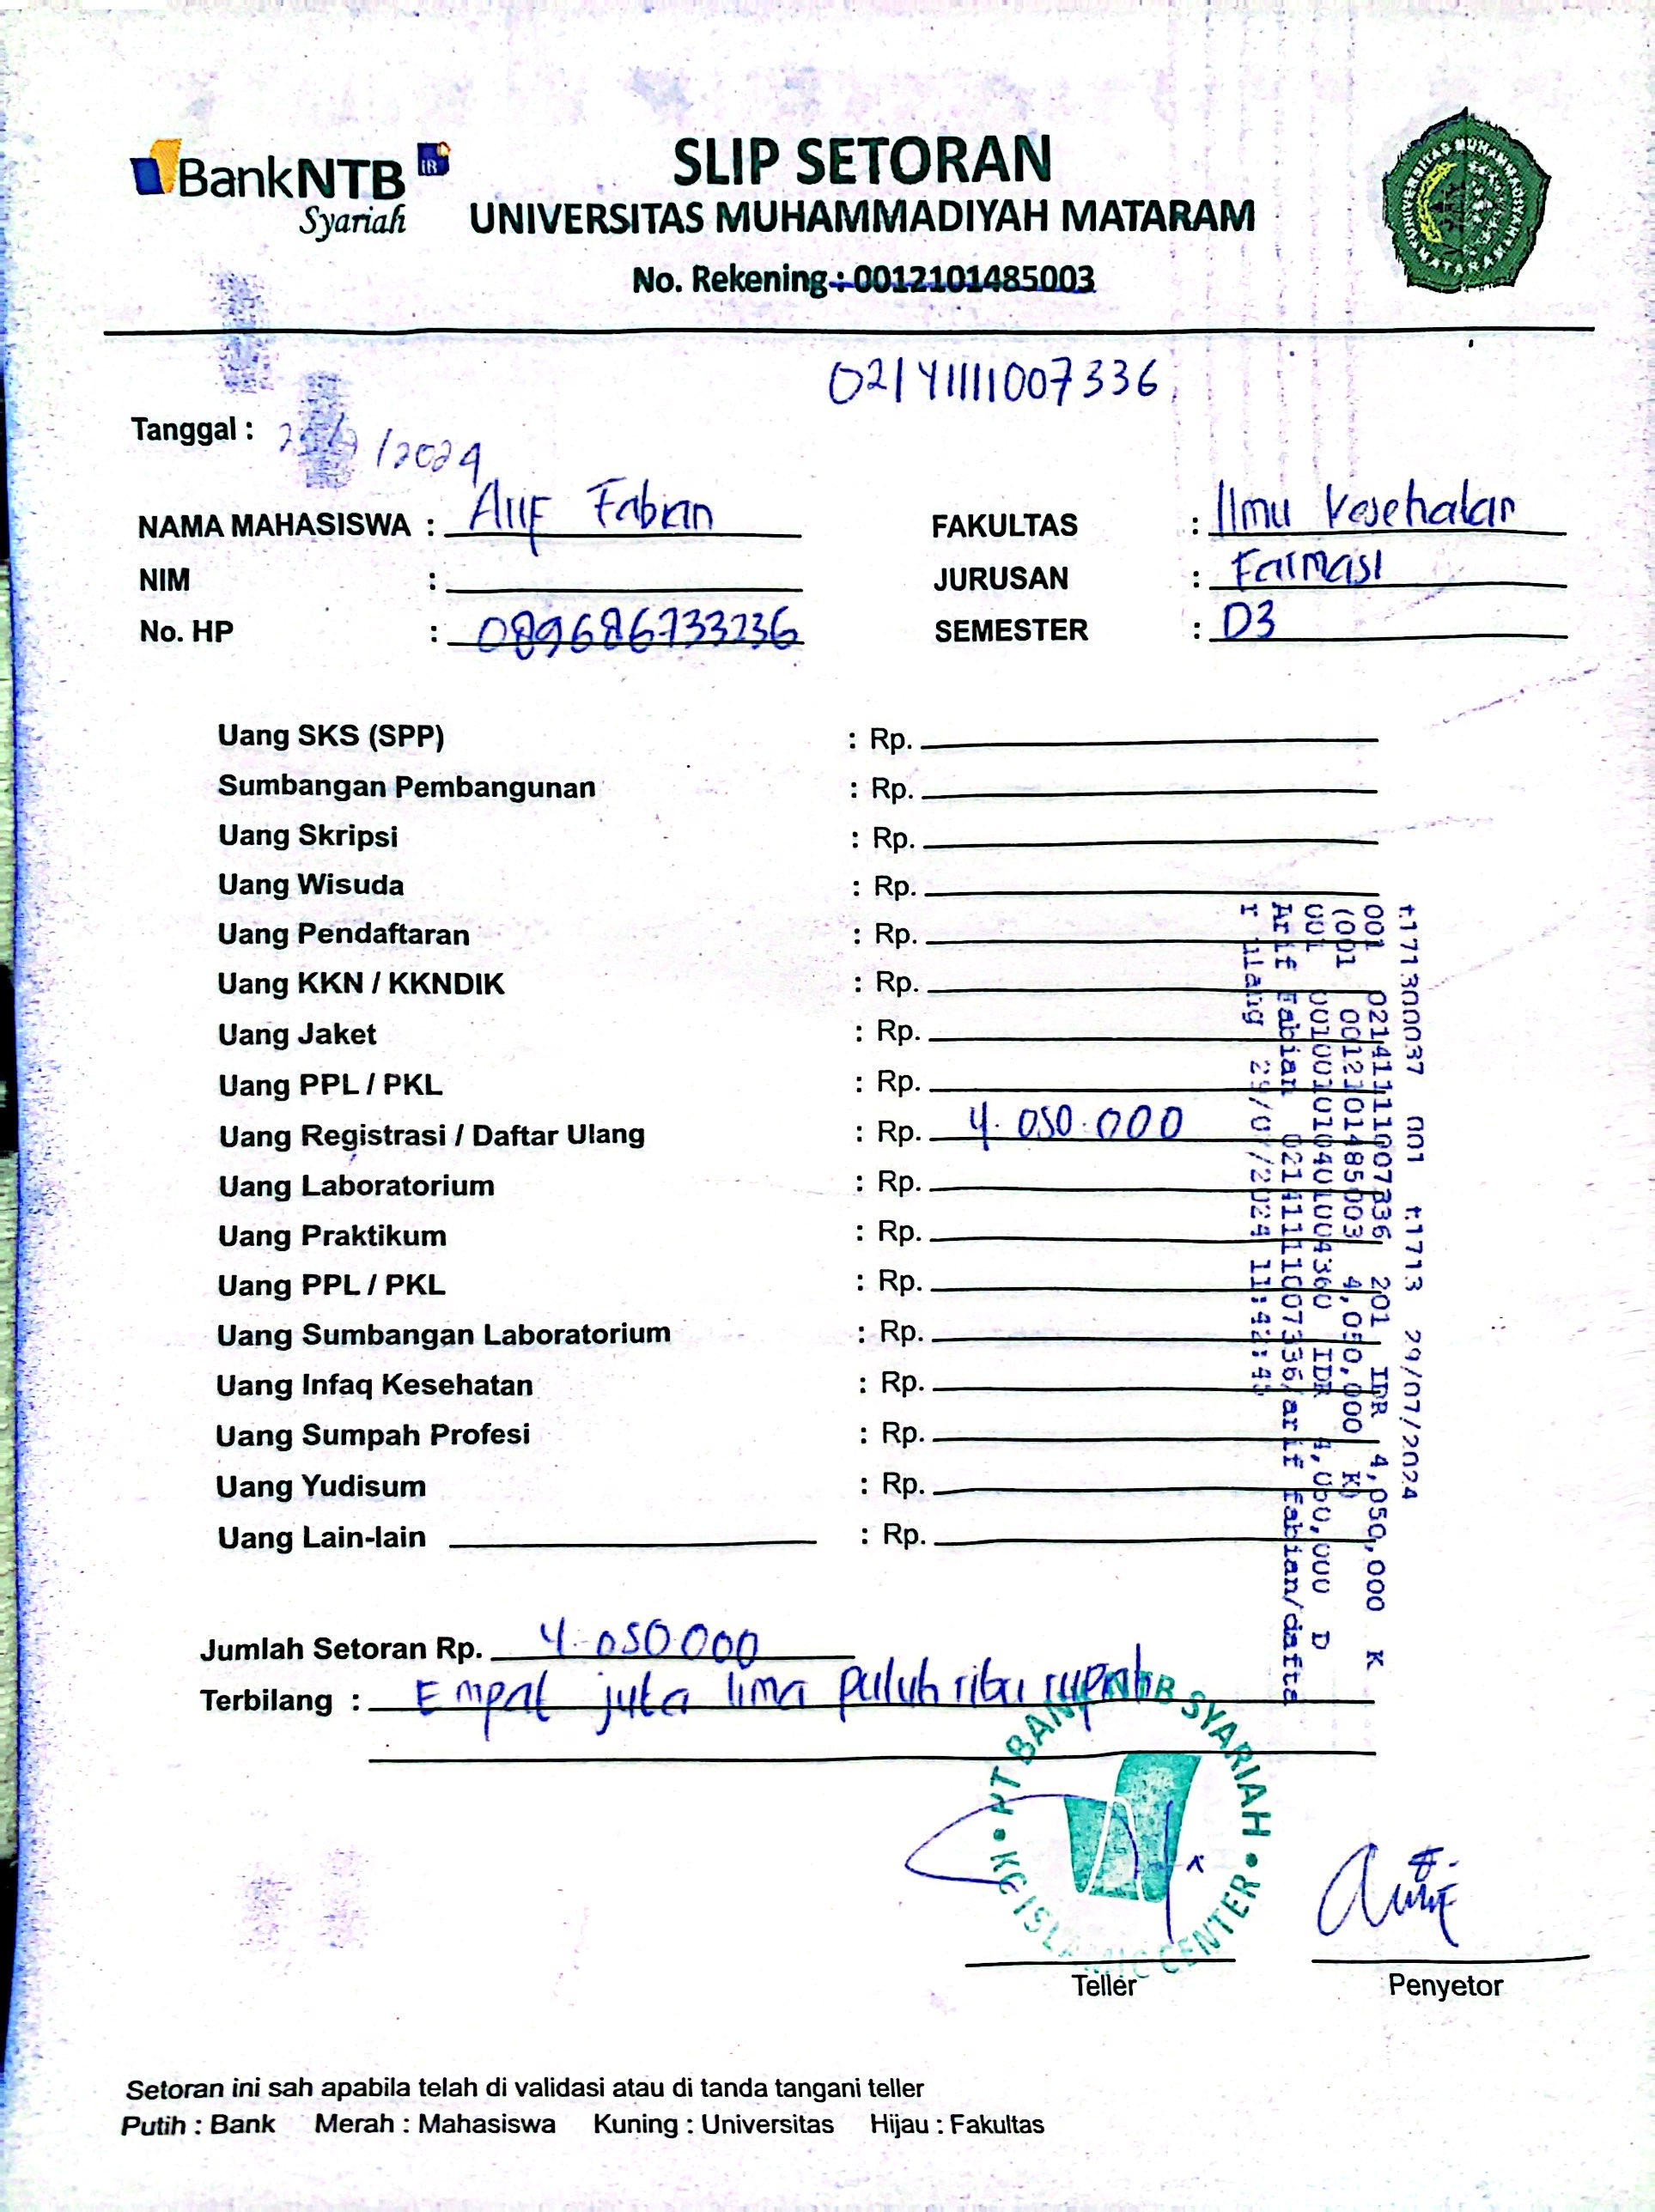 BankNTB Syariah
SLIP SETORAN
UNIVERSITAS MUHAMMADIYAH MATARAM
No. Rekening : 0012101485003
UNIVERSITAS MUHAMMADIYAH MATARAM
02141111007336
Tanggal : /2024
NAMA MAHASISWA : Arif Fabian
NIM :
No. HP : 089686733236
FAKULTAS : Ilmu Kesehatan
JURUSAN : Farmasi
SEMESTER : D3
Uang SKS (SPP) : Rp.
Sumbangan Pembangunan : Rp.
Uang Skripsi : Rp.
Uang Wisuda : Rp.
Uang Pendaftaran : Rp.
Uang KKN / KKNDIK : Rp.
Uang Jaket : Rp.
Uang PPL / PKL : Rp.
Uang Registrasi / Daftar Ulang : Rp. 4.050.000
Uang Laboratorium : Rp.
Uang Praktikum : Rp.
Uang PPL / PKL : Rp.
Uang Sumbangan Laboratorium : Rp.
Uang Infaq Kesehatan : Rp.
Uang Sumpah Profesi : Rp.
Uang Yudisum : Rp.
Uang Lain-lain : Rp.
t1713000037 001 t1713 29/07/2024
001 02141111007336 201 IDR 4,050,000 K
(001 0012101485003 4,050,000 K)
001 IDR 4,050,000 D
Arif Fabian 02141111007336/arif fabian/dafta
r ulang 29/07/2024 11:42:45
Jumlah Setoran Rp. 4.050.000
Terbilang : Empat juta lima puluh ribu rupiah
PT BANK NTB SYARIAH
KC ISLAMIC CENTER
Teller
Penyetor
Setoran ini sah apabila telah di validasi atau di tanda tangani teller
Putih : Bank Merah : Mahasiswa Kuning : Universitas Hijau : Fakultas